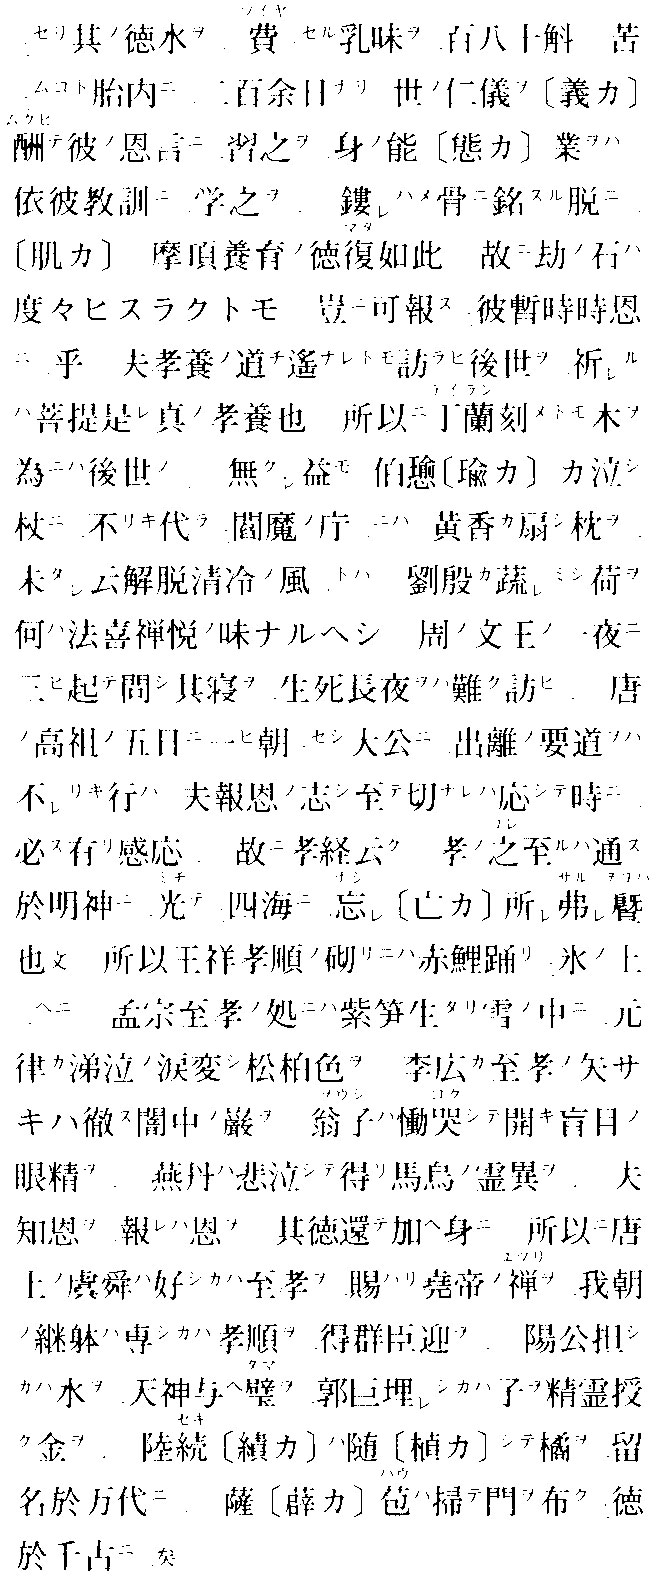 セリ其ノ徳水ヲ 費セル乳味ヲ 百八十斛 苦
ムコト胎内ニ 二百余日ナリ 世ノ仁儀ヲ〔義カ〕
酬テ彼ノ恩言ニ 習之ヲ 身ノ能〔態カ〕業ヲハ
依彼教訓ニ 学之ヲ 鏤レハメ骨ニ銘スル脱ニ
〔肌カ〕 摩頂養育ノ徳復如此 故ニ劫ノ石ハ
度々ヒスラクトモ 豈ニ可報ス 彼暫時時恩
ニ 乎 夫孝養ノ道チ遙ナレトモ訪ラヒ後世ヲ 祈レル
ハ菩提是レ真ノ孝養也 所以ニ丁蘭刻メトモ木ヲ
為ニハ後世ノ 無クレ益モ 伯瑜〔瑜カ〕カ泣シ
杖ニ 不リキ代ラ 閻魔ノ庁ニハ 黄香カ扇シ枕ヲ
未タレ云解脱清冷ノ風トハ 劉殷カ蔬レミシ荷ヲ
何ハ法喜禅悦ノ味ナルヘシ 周ノ文王ノ一夜ニ
三ヒ起テ問シ其寝ヲ 生死長夜ヲハ難ク訪ヒ 唐
ノ高祖ノ五日ニ一ヒ朝セシ大公ニ 出離ノ要道ヲハ
不レリキ行ハ 夫報恩ノ志シ至テ切ナレハ応シテ時ニ
必ス有リ感応 故ニ孝経云ク 孝ノ之至ルハ通ス
於明神ニ 光テ四海ニ 忘レ〔亡カ〕所レ弗レ暨
也文 所以王祥孝順ノ砌リニハ赤鯉踊リ氷ノ上
ヘニ 孟宗至孝ノ処ニハ紫笋生タリ雪ノ中ニ 元
律カ涕泣ノ涙変シ松柏色ヲ 李広カ至孝ノ矢サ
キハ徹ス闇中ノ巌ヲ 翁子ハ慟哭シテ開キ盲目ノ
眼精ヲ 燕丹ハ悲泣シテ得リ馬烏ノ霊異ヲ 夫
知恩ヲ 報レハ恩ヲ 其徳還テ加ヘ身ニ 所以ニ唐
土ノ虞舜ハ好シカハ至孝ヲ 賜ハリ堯帝ノ禅ヲ 我朝
ノ継躰ハ専シカハ孝順ヲ 得群臣迎ヲ 陽公担シ
カハ水ヲ 天神与ヘ璧ヲ 郭巨埋レシカハ子ヲ精霊授
ク金ヲ 陸続〔績カ〕ハ随〔植カ〕シテ橘ヲ 留
名於万代ニ 薩〔薜カ〕苞ハ掃テ門ヲ布ク 徳
於千古ニ 矣